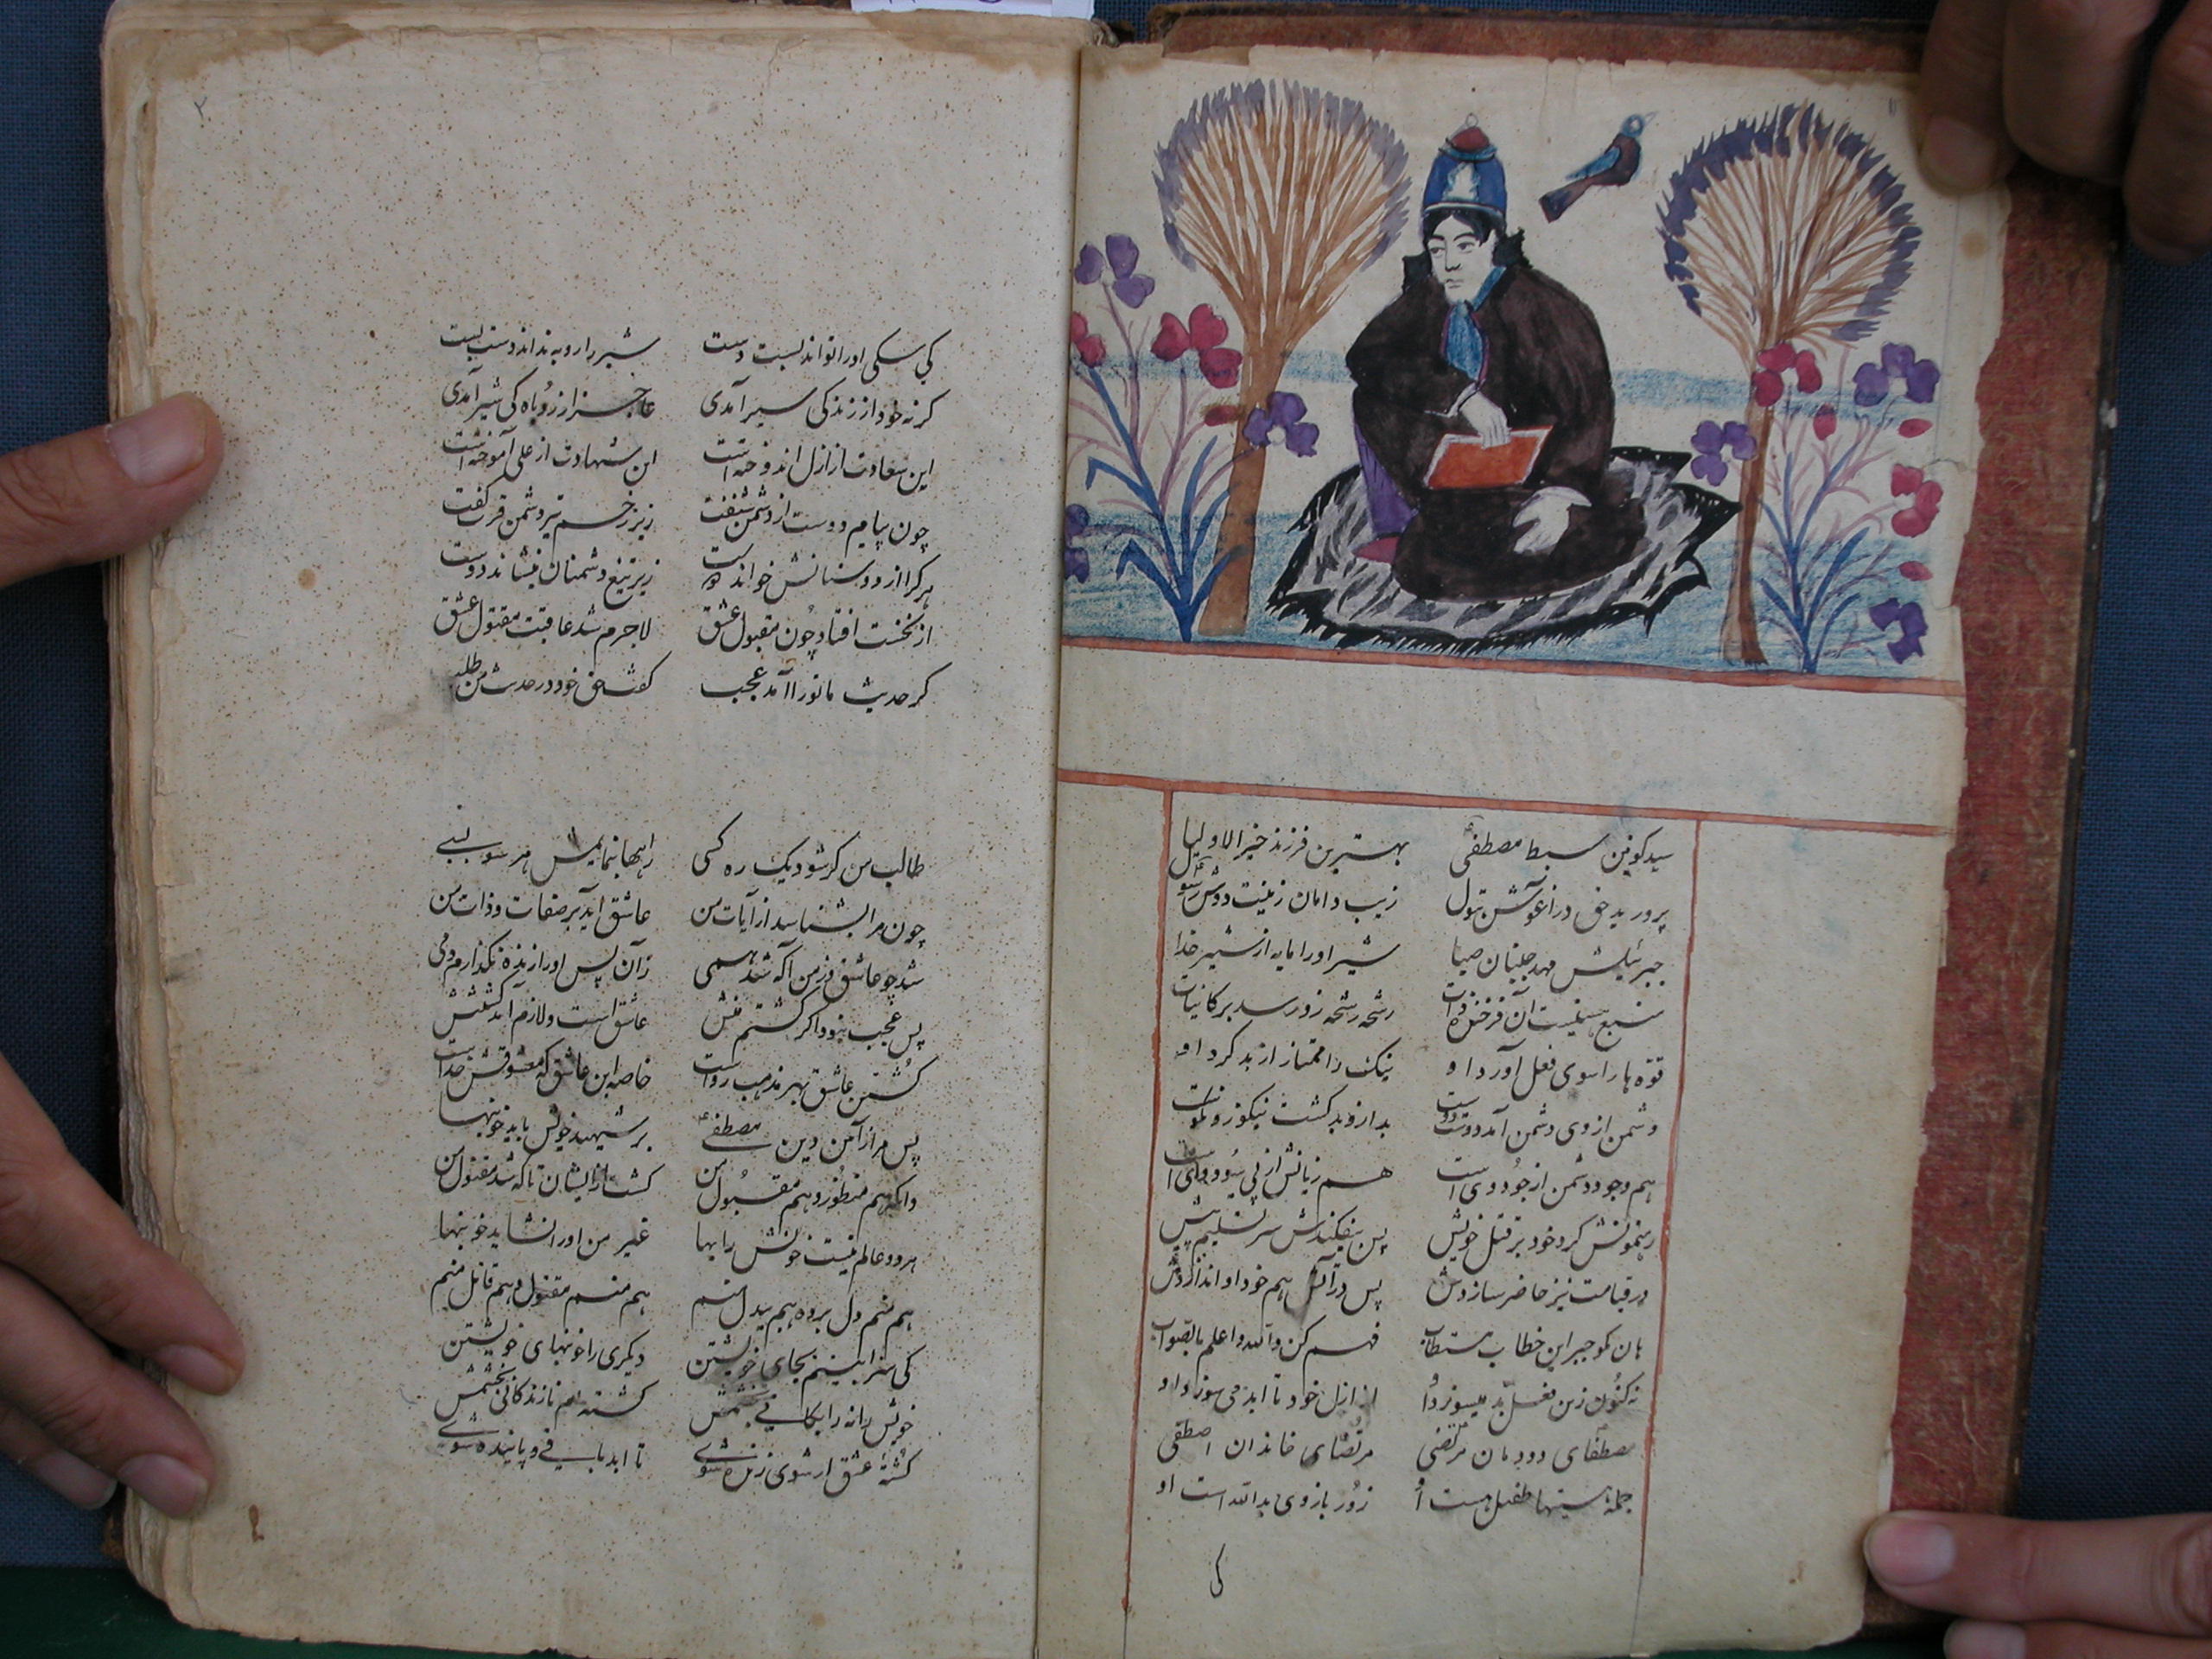 سید کونین سبط مصطفی بهترین فرزند خیر الاولیا
پرورید حق در آغوش بتول زیب دامان زینت دوش رسول
جبرئیلش مهد جنبان صبا شیر او را مایه از شیر خدا
منبع هستیست آن فرخنده ذات رشحه رشحه زو رسد بر کاینات
قوه ها را سوی فعل آورد او نیک را ممتاز از بد کرد او
دشمن از وی دشمن آمد دوست دوست بد ازو بد گشت نیکو زو نکوست
هم وجود دشمن از جود وی است هم زیانش از پی سود وی است
رهنمونش کرد خود بر قتل خویش پس بیفکندش سر تسلیم پیش
در قیامت نیز حاضر سازدش پس در آتش هم خود او اندازدش
هان مگو جبر این خطاب مستطاب فهم کن والله اعلم بالصواب
نه کنون زین فعل بد میسوزد او از ازل خود تا ابد می سوزد او
مصطفای دودمان مرتضی مرتضای خاندان اصطفی
جمله هستیها طفیل هست او زور بازوی ید الله است او
کی
۲
کی سگی او را تواند بست دست شیر را روبه نداند دست بست
گر نه خود از زندگی سیر آمدی عاجز از روباه کی شیر آمدی
این سعادت از ازل اندوخته است این شهادت از علی آموخته است
چون پیام دوست از دشمن شنفت زیر زخم تیر دشمن فزت گفت
هر کرا از دوستانش خواند دوست زیر تیغ دشمنان بنشاند دوست
از نخست افتاد چون مقبول عشق لاجرم شد عاقبت مقتول عشق
گر حدیث ما تو را آمد عجب گفته حق خود در حدیث من طلب
طالب من گر شود یک ره کسی راهها بنمایمش هر سو بسی
چون مرا بشناسد از آیات من عاشق آید بر صفات و ذات من
شد چو عاشق فرمن آگه شد همی زان پس او را زنده نگذارم دمی
پس عجب نبود اگر کشتم منش عاشق است و لازم آمد کشتنش
کشتن عاشق بهر مذهب رواست خاصه این عاشق که معشوقش خداست
پس مرا ز آمن دین مصطفی بر شهید خویش باید خونبها
وانکه هم منظور و هم مقبول من گشت از ایشان تا که شد مقتول من
هر دو عالم نیست خونش را بها غیر من او را نشاید خونبها
هم منم دل برده هم بیدل منم هم منم مقتول و هم قاتل منم
کی سزا بینم بجای خویشتن دیگری را خونبهای خویشتن
خویش را نه رایگانی بخشمش کشته ام تا زندگانی بخشمش
کشتهٔ عشق ار شوی زنده شوی تا ابد باقی و پاینده شوی